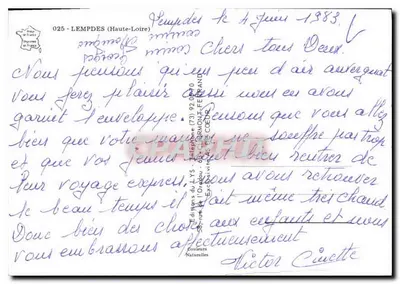 025 - LEMPDES (Haute-Loire)
Lempdes le 4 Juin 1983
cousine Monique
cousin Georges
Chers tous Deux.
Nous pensons qu'un peu d'air auvergnat
vous ferez plaisir aussi nous en avons
garnit l'enveloppe. Pensons que vous allez
bien que votre ne souffre pas trop
et que vos sont bien rentrer de
leur voyage express, nous avons retrouver
le beau temps il fait même très chaud
Donc bien des choses aux enfants et nous
vous embrassons affectueusement
Victor Ginette
Editions du LYS
CLERMONT-FERRAND
Couleurs
Naturelles